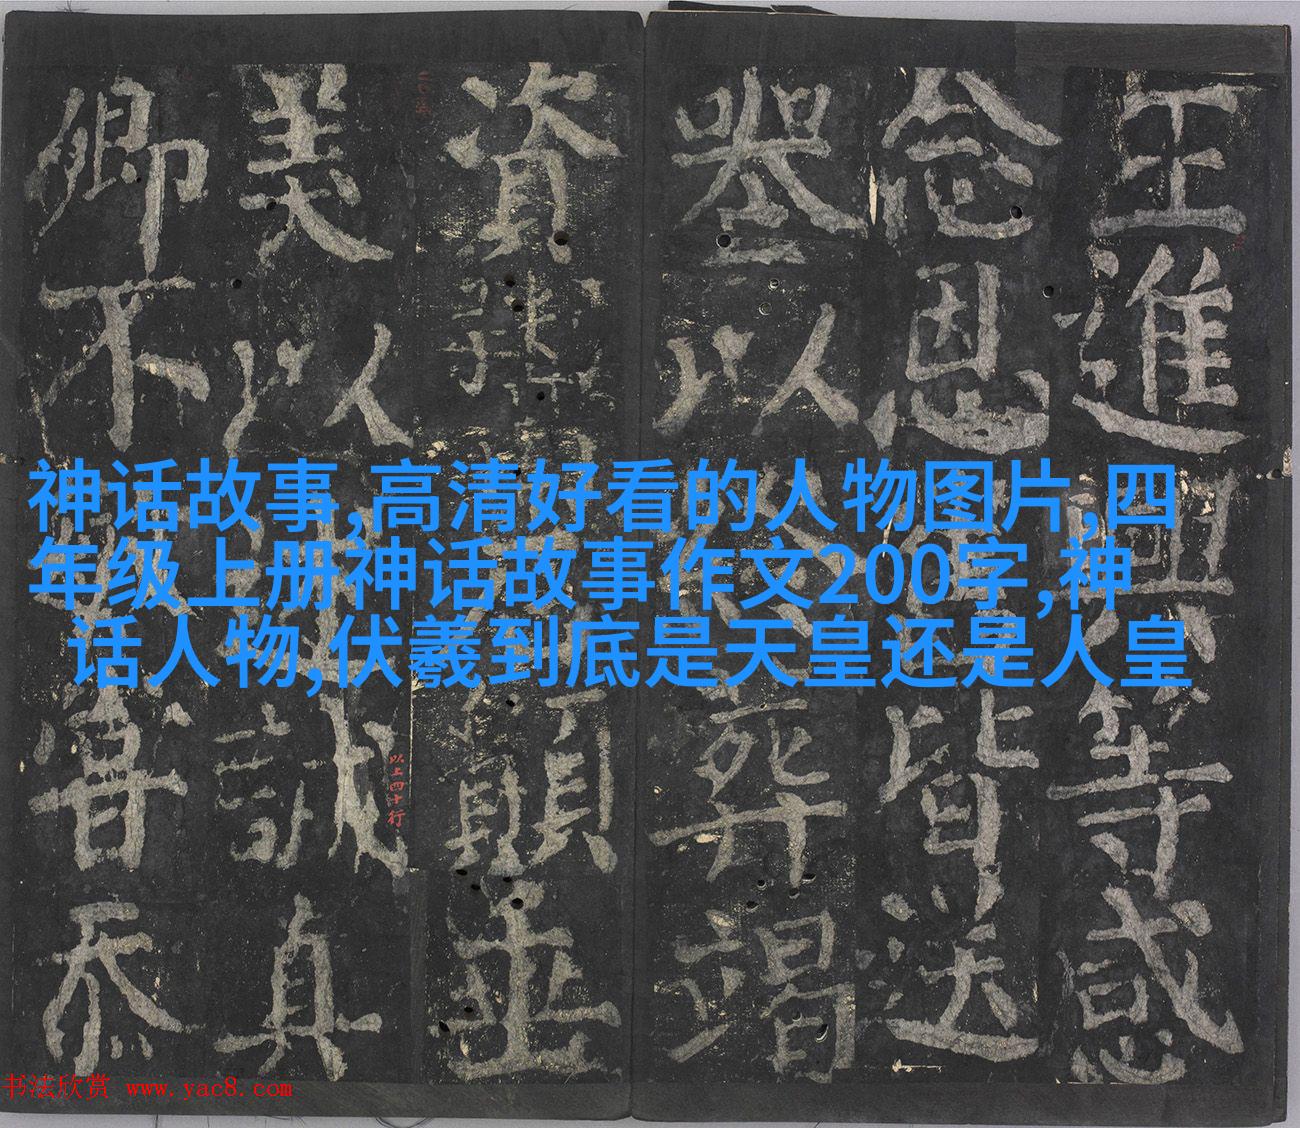 神话故事,高清好看的人物图片,四
年级上册神话故事作文200字,神
话人物,伏羲到底是天皇还是人皇
王進興等感
念恩皆送
以葬竭
資顧並
美以誠真
卿不忝
以上四十行
书法欣赏 www.yac8.com